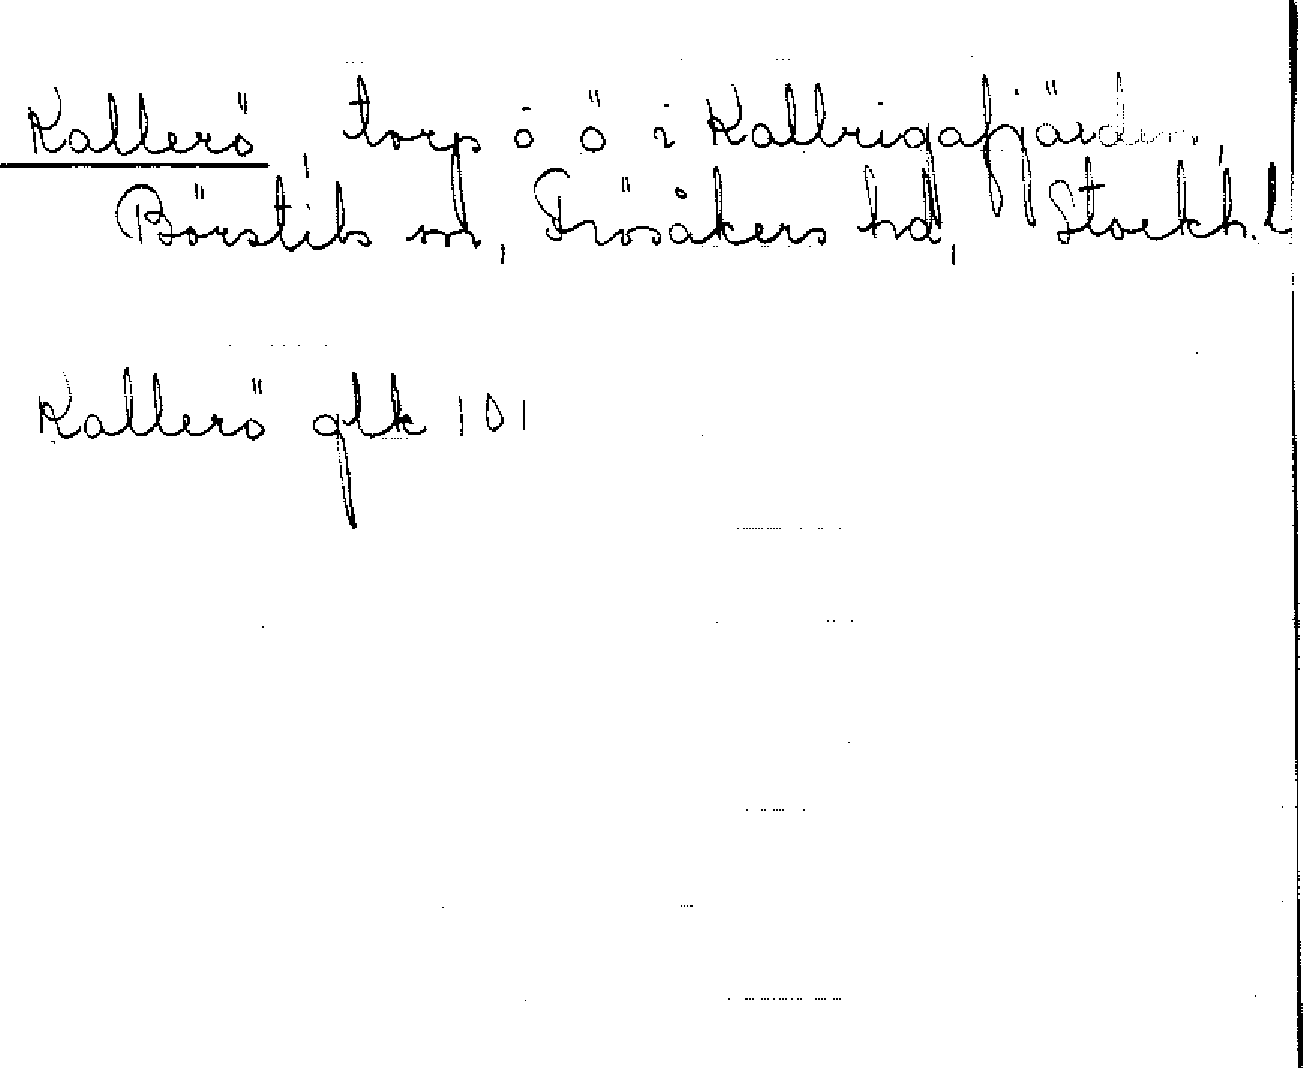 Kallerö, torp å ö i Kallrigafjärden,
Börstils sn, Frösåkers hd, Stockh. l
Kallerö glk 101